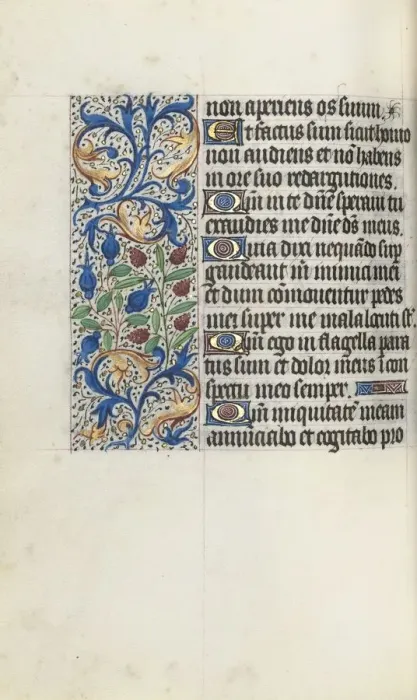 non aperiens os suum.
Et factus sum sicut homo
non audiens et nō habens
in ore suo redargutiones.
Qm̄ in te dn̄e speraui tu
exaudies me dn̄e ds̄ meus.
Quia dixi nequādo sup
gaudeant m̄ inimici mei
et dum cōmouentur pedes
mei super me mala locuti st̄.
Qm̄ ego in flagella para
tus sum et dolor meus i con
spectu meo semper.
Qm̄ iniquitatē meam
annunciabo et cogitabo pro